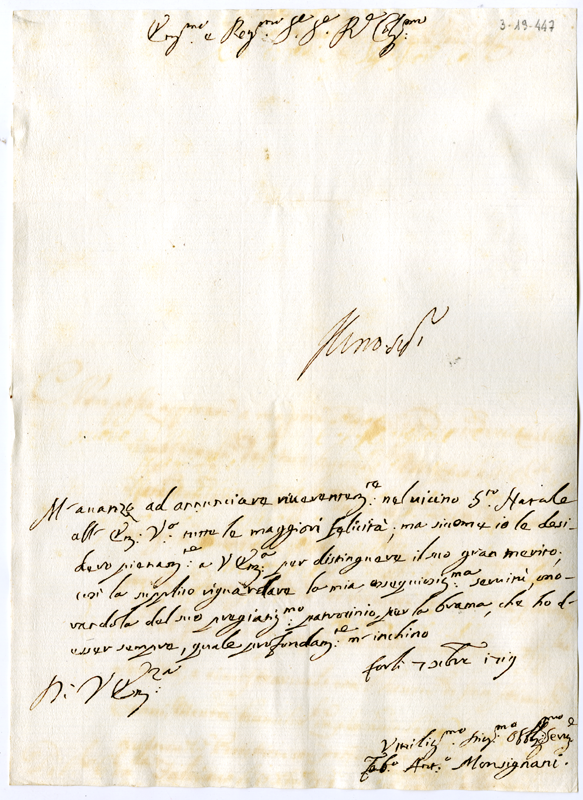 3-19-447
Em.mo e Rev.mo S.r S.r P.ne Col.mo
M'avanzo ad annunciare riverentem.te nel vicino S.to Natale
all' Em. V.a tutte le maggiori felicità, ma sicome io le desi-
dero pienam.te a V Em.a per distinguere il suo gran merito;
così la supplico riguardare la mia ossequiosis.ma servitù, ono-
randola del suo pregiatis.mo patrocinio, per la brama, che ho d'
esser sempre, quale profondam.te m'inchino
Di V Em.za
Forlì 7 xbre 1719
Umiliss.mo Obblig.mo Serv.e
Fab.o Ant.o Monsignani